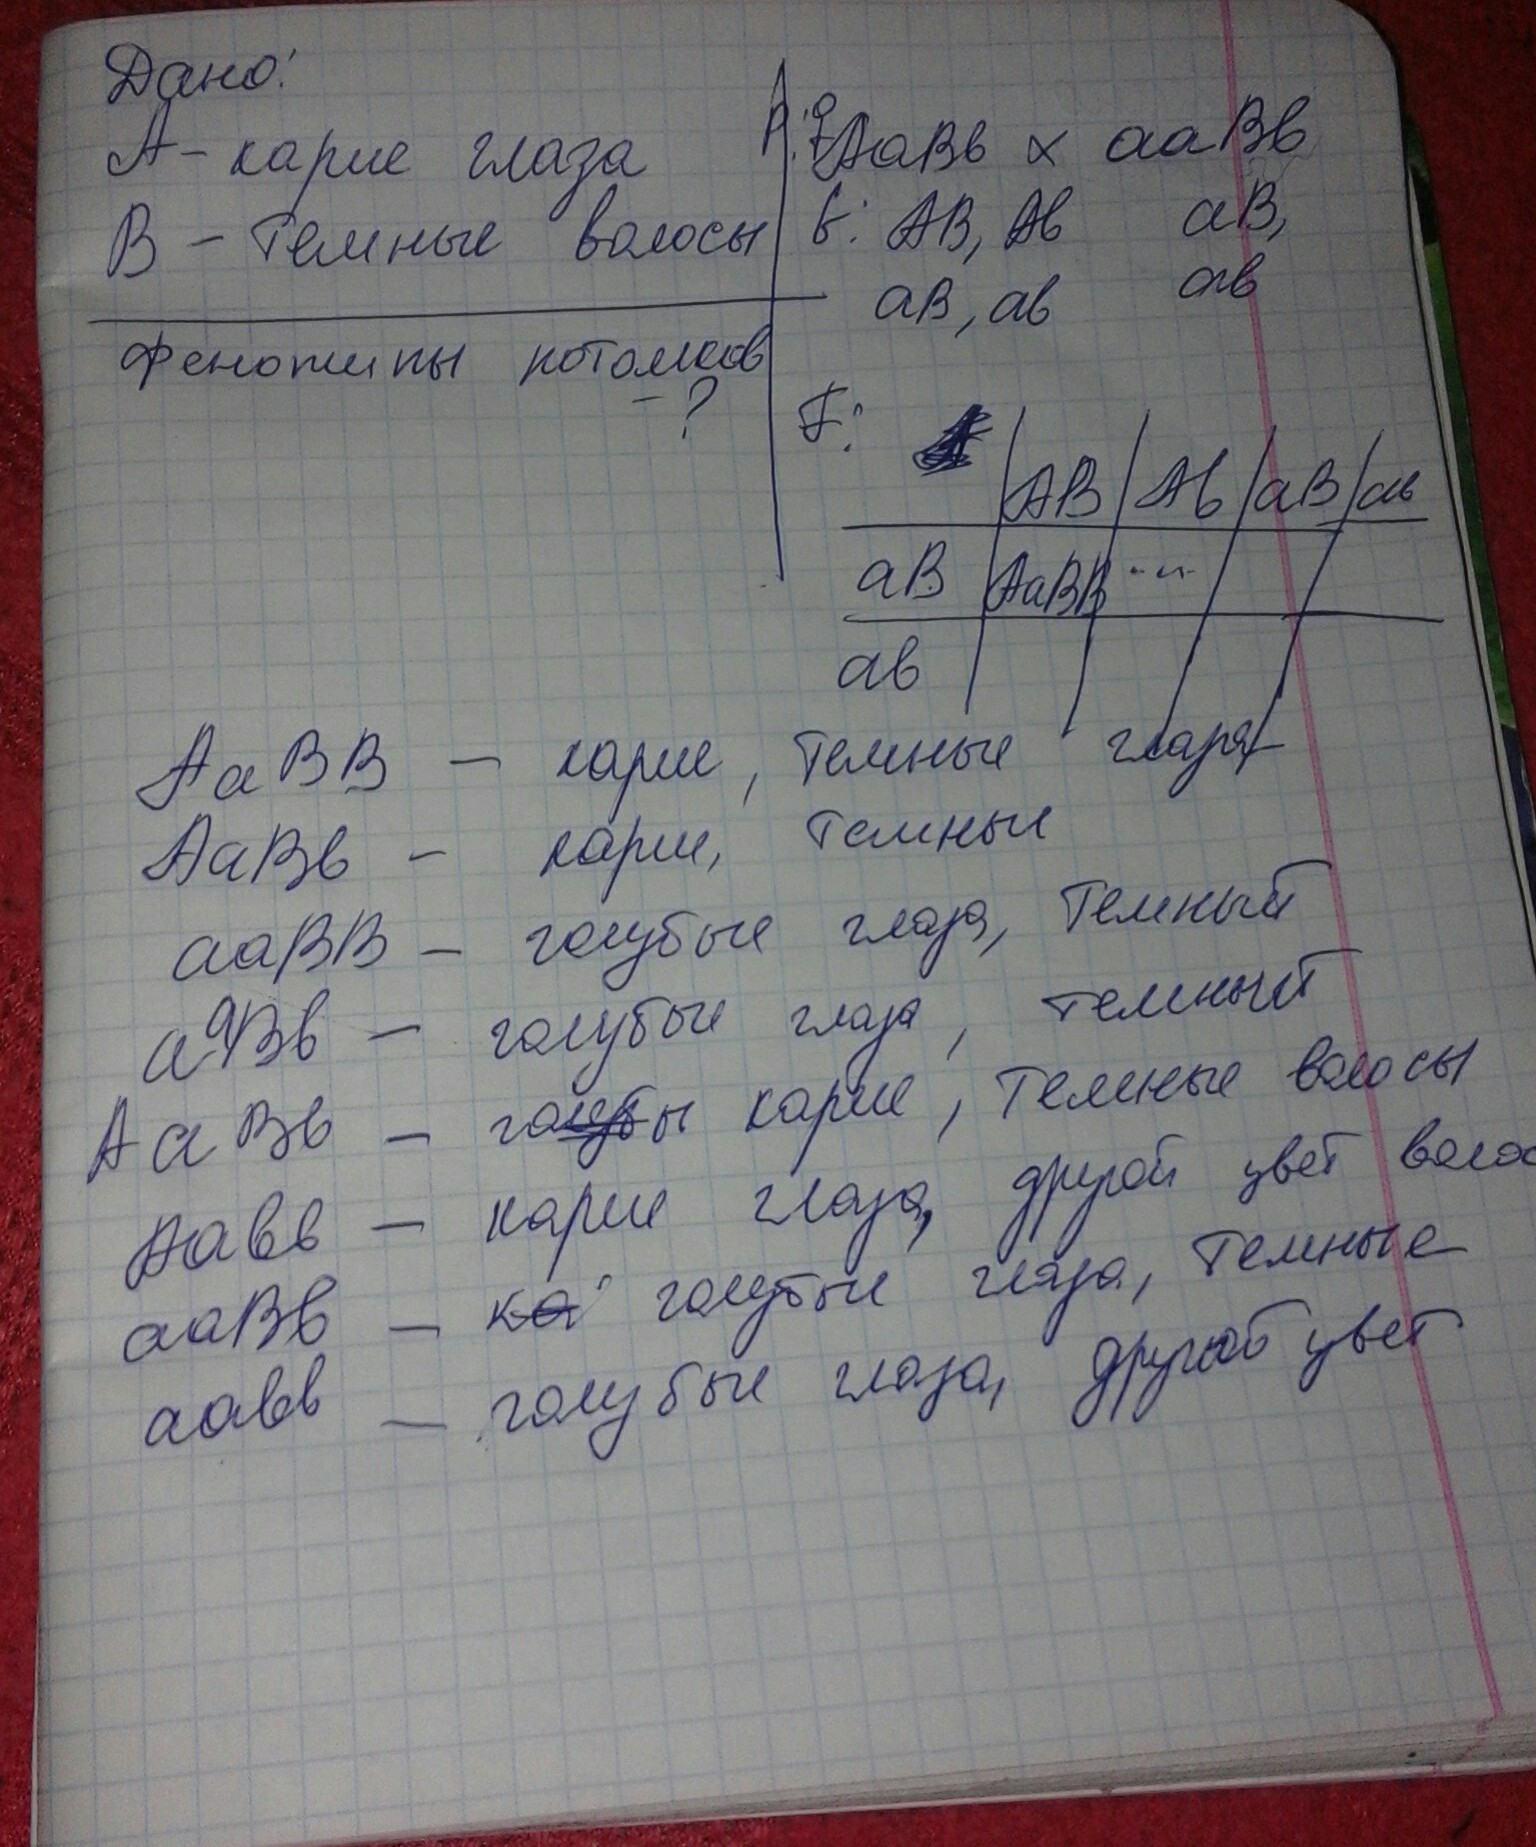 Дано:
А - карие глаза
В - темные волосы
фенотипы потомков
- ?
P: ♀ АаВв × ааВв
G: АВ, Ав аВ,
аВ, ав ав
F:
АВ Ав аВ ав
аВ АаВВ ...
ав
АаВВ - карие, темные
АаВв - карие, темные
ааВВ - голубые глаза, темный
ааВв - голубые глаза, темный
АаВв - карие, темные волосы
Аавв - карие глаза, другой цвет волос
ааВв - голубые глаза, темные
аавв - голубые глаза, другой цвет